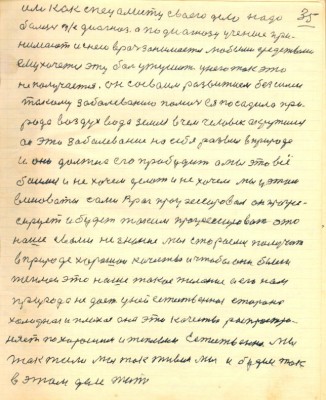 или как специалисту своего дело надо 35
болен п/к диагноз а по диагнозу ученые при
нимают и него врач занимается любыми средствами
ему хочется эту бол утушит у него так это
неполучается. он сваим развитием безсилен
такому заболеванию помич ся посадила при
рода воздух вода земля в чем человек ощутил
ся это заболевание на себя развил в природе
и она должна его пробудит а мы это всё
боимся и не хочем делат и не хочем мы у этим
виноваты сами Враг прогрессировал он прогре-
сирует и будет таким прогрессироват это
наше с вами не знания мы стараемся получат
в природе хорошая качество и чтобы она была
теплое это наше такое желание а его нам
природа не дает у ней естественная сторона
холодная и плохая она это качества распростра-
няет по хорошим и теплым Естественна мы
так жили мы так живем мы и будем так
в этом деле жить